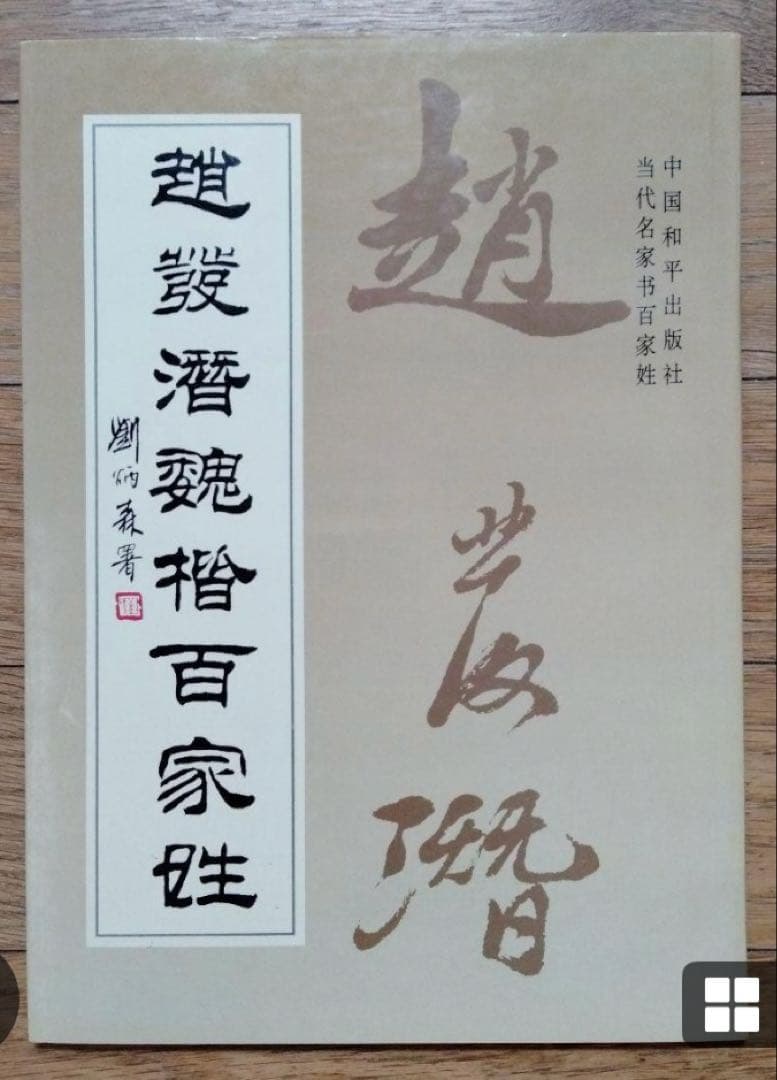 中国和平出版社
当代名家书百家姓
趙發潛
趙發潛魏楷百家姓
劉炳森署